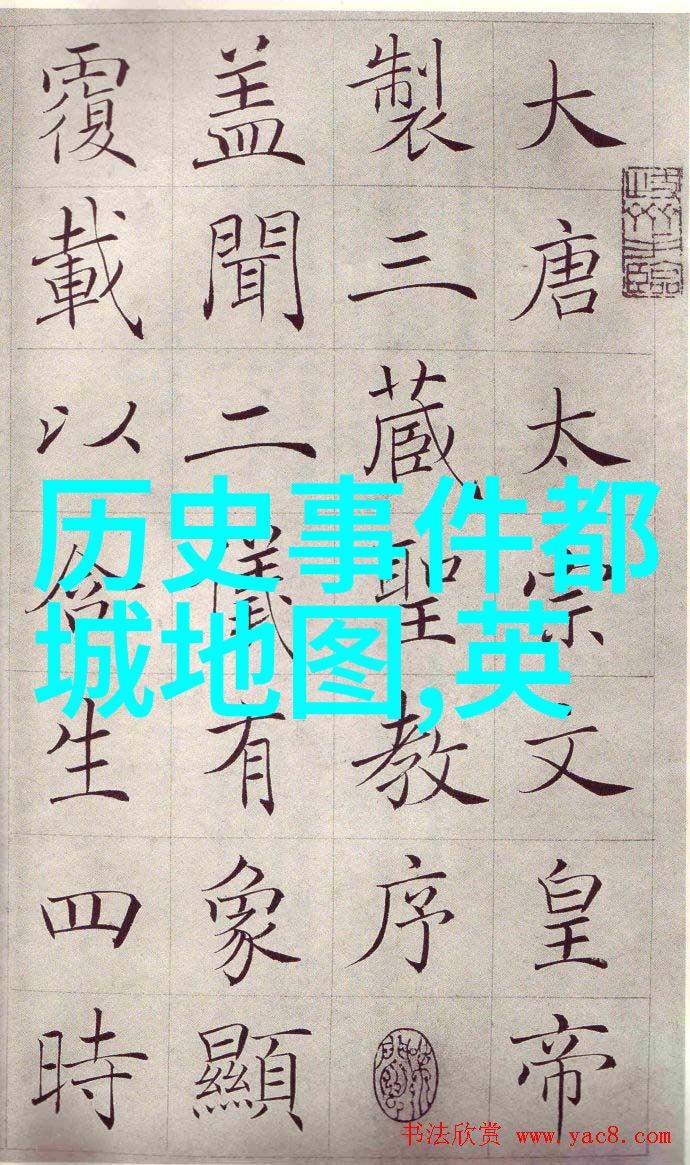 大唐太宗文皇帝
製三蔵聖教序
盖聞二儀有象顯
覆載以含生四時
历史事件都
城地图,英
书法欣赏 www.yac8.com